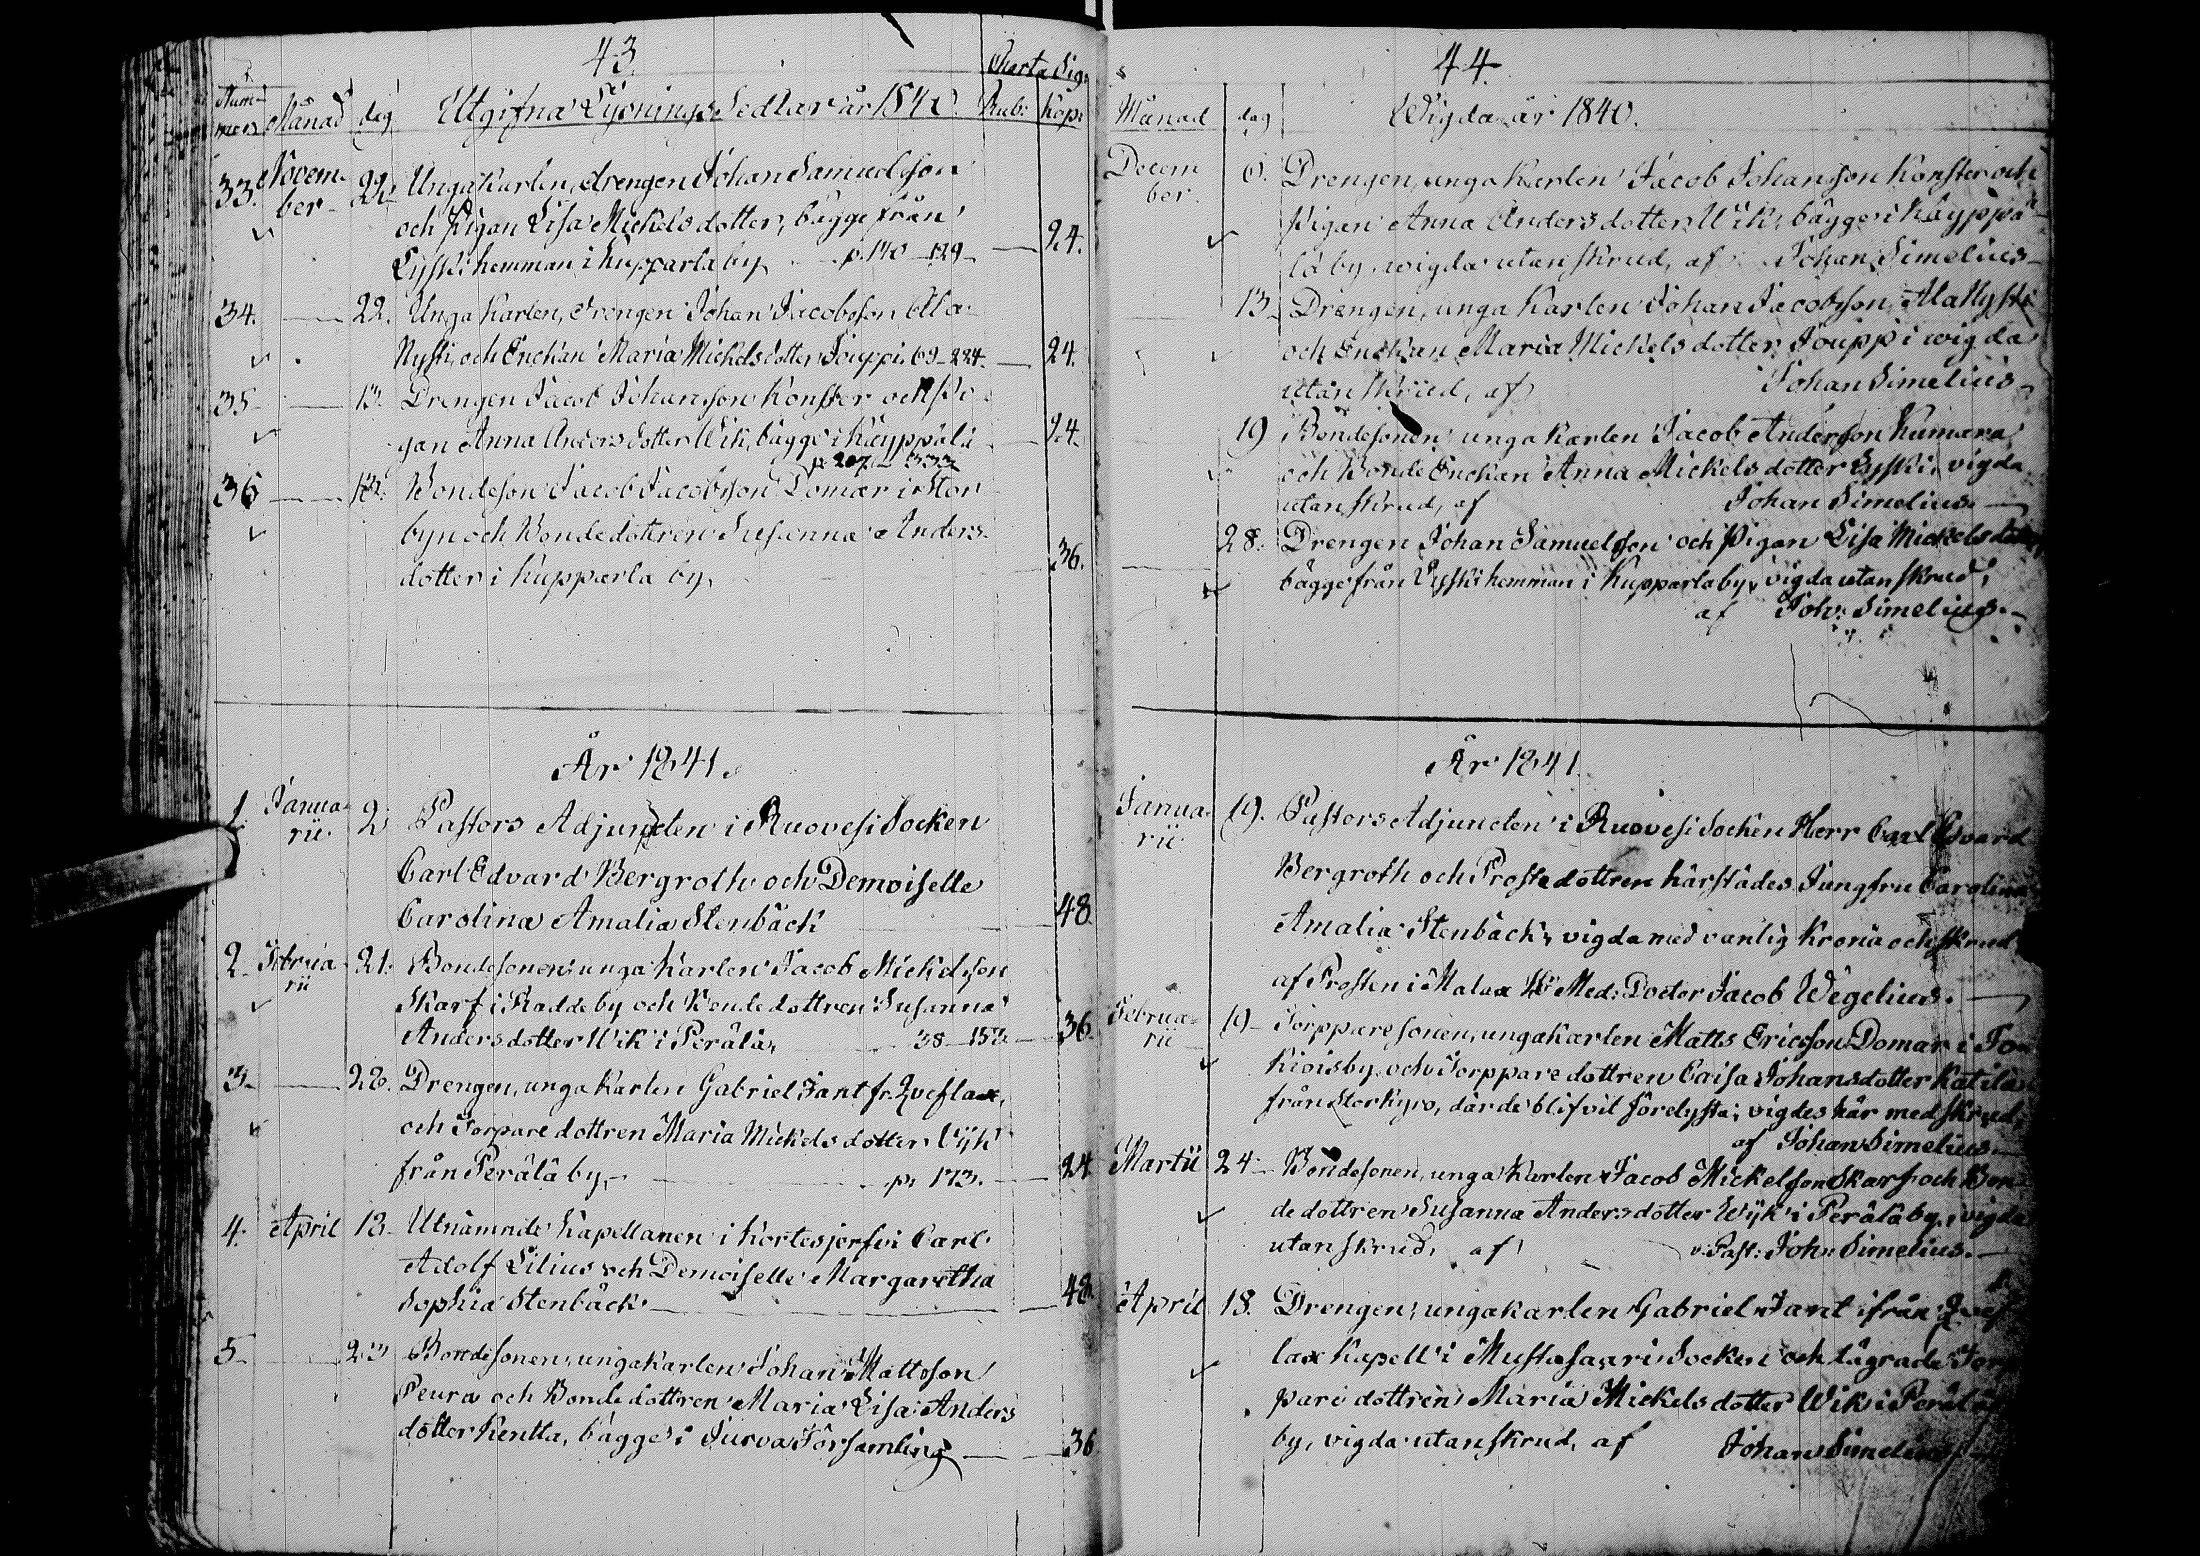 43.
Charta Sig.
Num-
mer Månad dag Utgifna Lysnings Sedlar år 1840. Rub: kop:
33. Novem- 22. Unga Karlen, drengen Johan Samuelsson
ber och Pigan Lisa Mickelsdotter, bägge från
Lyski hemman i Kupparla by, p. 140 129 24.
34. 22. Unga Karlen, drengen Johan Jacobsson Ala
Nysti, och Enckan Maria Mickelsdotter Jouppi, 69-224. 24.
35 13. Drengen Jacob Johansson Konster och Pi-
gan Anna Andersdotter Wik, bägge i Käyppälä 24.
p. 207 333
36 13. Bondeson Jacob Jacobsson Domar i Stor
byn och Bondedottren Susanna Anders-
dotter i Kupparla by, 36.
År 1841.
1. Janua- 2. Pastors Adjuncten i Ruovesi Socken
rii. Carl Edvard Bergroth och Demoiselle
Carolina Amalia Stenbäck 48.
2. Februa- 21. Bondesonen, unga Karlen Jacob Mickelsson
rii Skarf i Radde by och Bondedottren Susanna
Andersdotter Wik i Perälä, 38 152 36.
3. 28. Drengen, unga Karlen Gabriel Jant fr. Qveflax,
och Torpare dottren Maria Mickelsdotter Wijk
från Perälä by, p. 173. 24
4. April 13. Utnämnde Kapellanen i Kortesjerfvi Carl
Adolf Lilius och Demoiselle Margaretha
Sophia Stenbäck 48.
5. 23 Bondesonen, unga karlen Johan Mattsson
Peura och Bondedottren Maria Lisa Anders
dotter Kentta, bägge i Jurva Församling 36
44.
Månad dag Wigda år 1840.
Decem 6. Drengen, unga Karlen Jacob Johansson Konster och
ber. Pigan Anna Andersdotter Wik, bägge i Käyppä-
lä by, wigda utan skrud, af Johan Simelius
13. Drengen, unga Karlen Johan Jacobsson Ala Nysti
och Enckan Maria Mickelsdotter Jouppi wigda
utan skrud, af Johan Simelius
19 Bondesonen unga Karlen Jacob Andersson Kumara
och Bonde Enckan Anna Mickelsdotter Lyski, vigda
utan skrud, af Johan Simelius.
28. Drengen Johan Samuelsson och Pigan Lisa Mickelsdotter
bägge från Lyski hemman i Kupparla by, vigda utan skrud,
af Joh: Simelius.
År 1841.
Janua- 19. Pastors Adjuncten i Ruovesi Socken Herr Carl Edvard
rii Bergroth och Prostedottren härstädes Jungfru Carolina
Amalia Stenbäck, vigda med vanlig Krona och skrud
af Prosten i Malax H:r Med: Doctor Jacob Wegelius.
Februa- 19 Torppare sonen, unga karlen Matts Ericsson Domar i To-
rii kiois by och Torppare dottren Caisa Johansdotter Katila
från Storkyro, där de blifvit förelysta; vigdes här med skrud,
af Johan Simelius.
Martii 24 Bondesonen, unga Karlen Jacob Mickelsson Skarf och Bon-
de dottren Susanna Andersdotter Wijk i Perälä by, vigda
utan skrud, af v. Past: Joh: Simelius.
April 18. Drengen, unga karlen Gabriel Jant ifrån Qvef
lax Kapell i Mustasaari Socken och lägrade Torp
pare dottren Maria Mickelsdotter Wik i Perälä
by, vigda utan skrud, af Johan Simelius